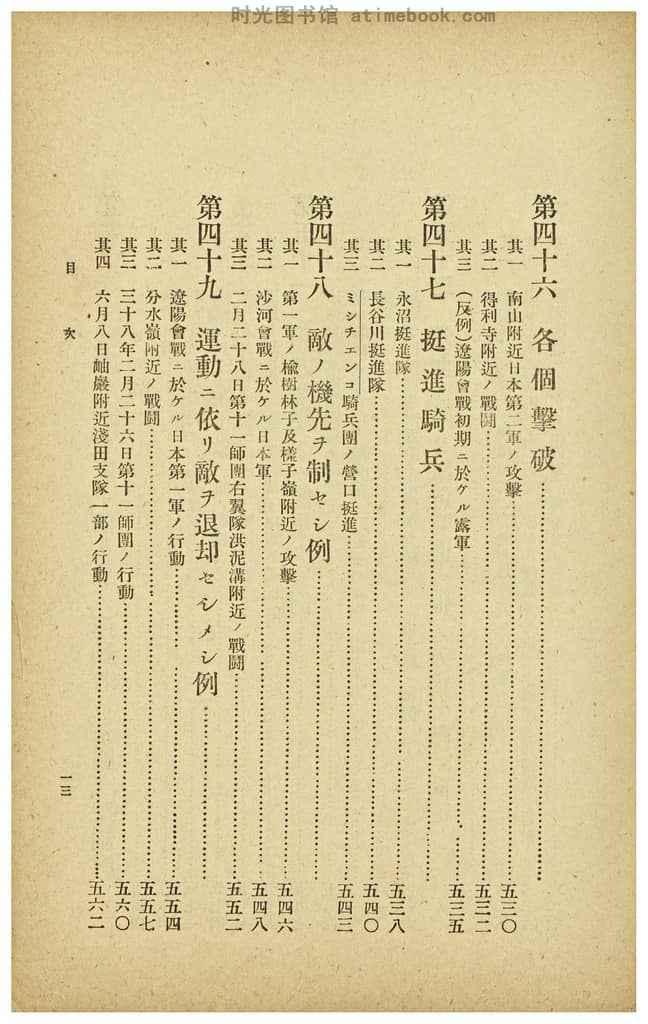 时光图书馆 atimebook.com
第四十六 各個擊破
其一 南山附近日本第二軍ノ攻擊 五三〇
其二 得利寺附近ノ戰鬪 五三二
其三 (反例)遼陽會戰初期ニ於ケル露軍 五三五
第四十七 挺進騎兵
其一 永沼挺進隊 五三八
其二 長谷川挺進隊 五四〇
其三 ミシチエンコ騎兵團ノ營口挺進 五四三
第四十八 敵ノ機先ヲ制セシ例
其一 第一軍ノ楡樹林子及樣子嶺附近ノ攻擊 五四六
其二 沙河會戰ニ於ケル日本軍 五四八
其三 二月二十八日第十一師團右翼隊洪泥溝附近ノ戰鬪 五五二
第四十九 運動ニ依リ敵ヲ退却セシメシ例
其一 遼陽會戰ニ於ケル日本第一軍ノ行動 五五四
其二 分水嶺附近ノ戰鬪 五五七
其三 三十八年二月二十六日第十一師團ノ行動 五六〇
其四 六月八日岫巖附近淺田支隊一部ノ行動 五六二
目次
一三